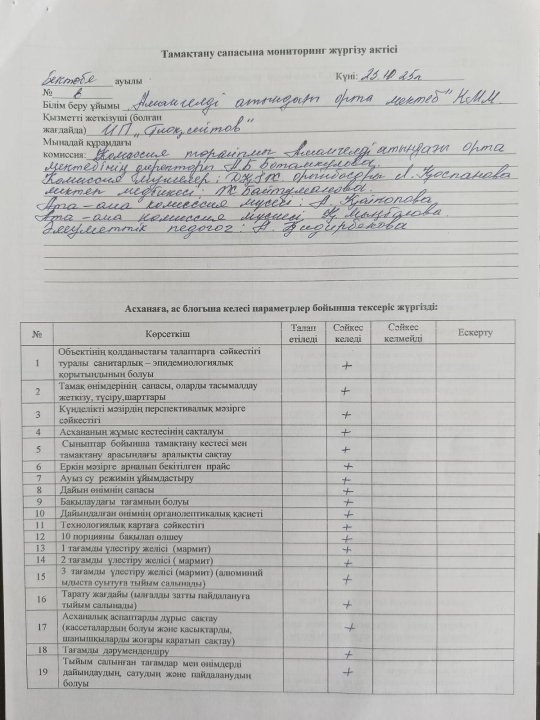 Тамақтану сапасына мониторинг жүргізу актісі
Бектөбе ауылы Күні: 23.10 25г
№ 2
Білім беру ұйымы „Амангелді атындағы орта мектеб" КММ
Қызметті жеткізуші (болған
жағдайда) ИП
Мынадай құрамдағы
комиссия: Комиссия төрайымы Амангелді атындағы орта
мектебінің директоры А.Б Ботамкулова.
Комиссия мүшелер: ДҚІЖ орынбасары Л. Қоспанова
мектеп медбикесі: Ж Байтұманова.
Ата-ана комиссия мүшесі: А. Қайнопова
Ата-ана комиссия мүшесі
Әлеуметтік педагог: А.
Асханаға, ас блогына келесі параметрлер бойынша тексеріс жүргізді:
№ Көрсеткіш Талап етіледі Сәйкес келеді Сәйкес келмейді Ескерту
1 Объектінің қолданыстағы талаптарға сәйкестігі
туралы санитарлық – эпидемнологиялық +
қорытындының болуы
2 Тамақ өнімдерінің сапасы, оларды тасымалдау +
жеткізу, түсіру,шарттары
3 Күнделікті мәзірдің перспективалық мәзірге +
сәйкестігі
4 Асхананың жұмыс кестесінің сақталуы +
5 Сыныптар бойынша тамақтану кестесі мен +
тамақтану арасындағы аралықты сақтау
6 Еркін мәзірге арналып бекітілген прайс +
7 Ауыз су режимін ұйымдастыру +
8 Дайын өнімнің сапасы +
9 Бақылаудағы тағамның болуы +
10 Дайындалған өнімнің органолептикалық қасиеті +
11 Технологиялық картаға сәйкестігі +
12 10 порцияны бақылап өлшеу +
13 1 тағамды үлестіру желісі (мармит) +
14 2 тағамды үлестіру желісі ( мармит) +
15 3 тағамды үлестіру желісі (мармит) (алюминий +
ыдыста суытуға тыйым салынады)
16 Тарату жағдайы (ылғалды затты пайдалануға +
тыйым салынады)
17 Асханалық аспаптарды дұрыс сақтау
(кассеталардың болуы және қасықтарды, +
шанышқыларды жоғары қаратып сақтау)
18 Тағамды дәрумендендіру +
19 Тыйым салынған тағамдар мен өнімдерді
дайындаудың, сатудың және пайдаланудың +
болуы